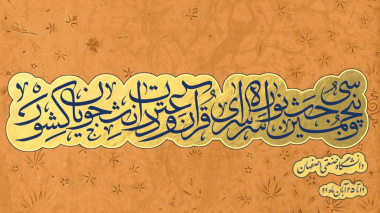 سی و پنجمین جشنواره سراسری قرآن و عترت دانشجویان کشور
دانشگاه صنعتی اصفهان
۱۹ تا ۲۵ آبان ماه ۹۹